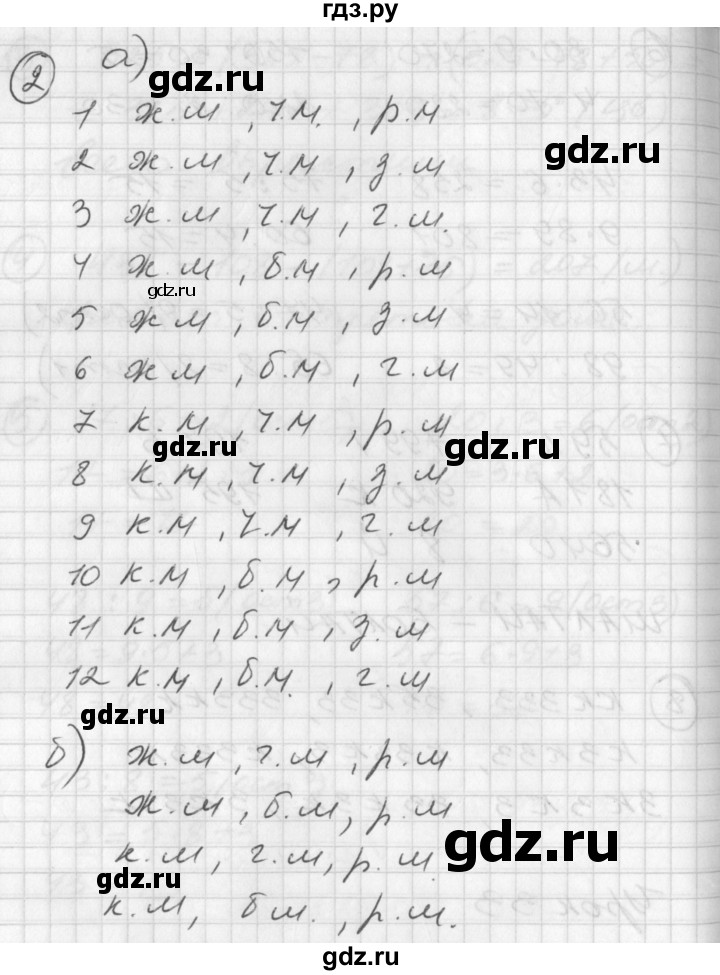 гдз.ру
2 а)
gdz.ru
1 ж.м , ч.м. , р.м
gdz.ru
2 ж.м , ч.м , з.м
3 ж.м , ч.м , г.м.
4 ж.м , б.м , р.м
gdz.ru
5 ж.м , б.м , з.м
6 ж.м , б.м , г.м
7 к.м , ч.м , р.м
gdz.ru
gdz.ru
8 к.м , ч.м , з.м
9 к.м , ч.м , г.м
10 к.м , б.м , р.м
11 к.м , б.м , з.м
12 к.м , б.м. , г.м
gdz.ru
б) ж.м , г.м , р.м
ж.м , б.м , р.м
gdz.ru
к.м , г.м , р.м.
gdz.ru
к.м , б.м. , р.м.
gdz.ru